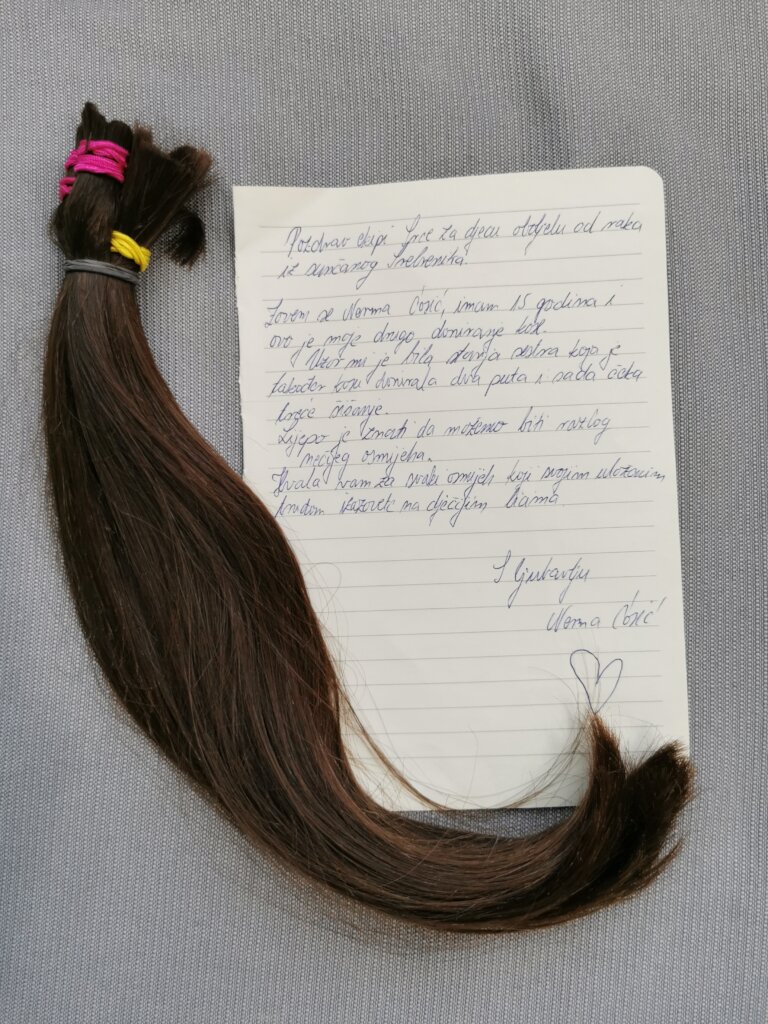 Pozdrav ekipi Srce za djecu oboljelu od raka
iz sunčanog Srebrenika!
Zovem se Norma Ćosić, imam 15 godina i
ovo je moje drugo doniranje kose.
Uzor mi je bila starija sestra koja je
također kosu donirala dva puta i sada čeka
treće šišanje.
Lijepo je znati da možemo biti razlog
nečijeg osmijeha.
Hvala vam za svaki osmijeh koji svojim uloženim
trudom izazovete na dječijim licima.
S ljubavlju
Norma Ćosić